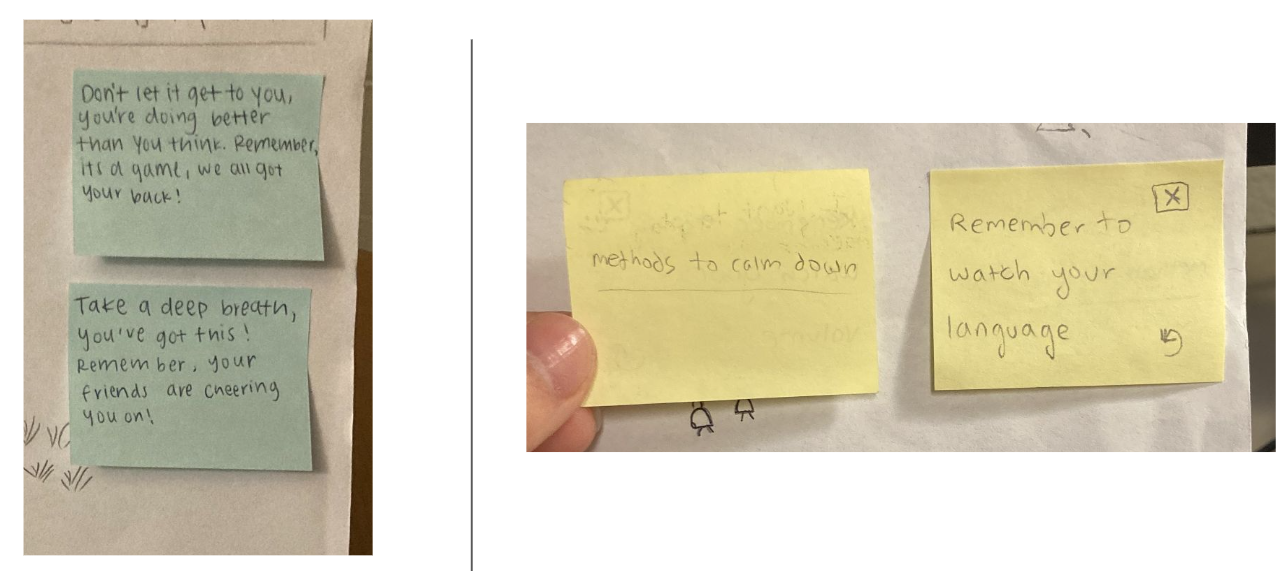 Don't let it get to you,
you're doing better
than you think. Remember,
its a game, we all got
your back!
Take a deep breath,
you've got this!
Remember, your
friends are cheering
you on!
methods to calm down
Remember to
watch your
language